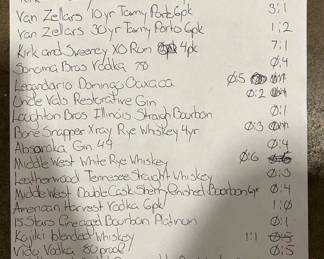 Van Zellars 10yr Tawny Porto 6pk 3:1
Van Zellars 30yr Tawny Porto 6pk 1:2
Kirk and Sweeney XO Rum 4pk 7:1
Sonoma Bros Vodka 750 0:4
Legendario Domingo Oaxaca 0:5
Uncle Vals Restorative Gin 0:2
Laughton Bros Illinois Straigh Bourbon 0:1
Bone Snapper Xray Rye Whiskey 4yr 0:3
Absaroka Gin 49 0:4
Middle West White Rye Whiskey 0:6
Leatherwood Tennesee Straight Whiskey 0:3
Middle West Double Cask Sherry finished Bourbon 6yr 0:4
American Harvest Vodka 6pk 1:0
15 Stars Fine aged Bourbon Platinum 0:1
Kajiki blended Whiskey 1:1 0:5
Vido Vodka 80 proof 0:5